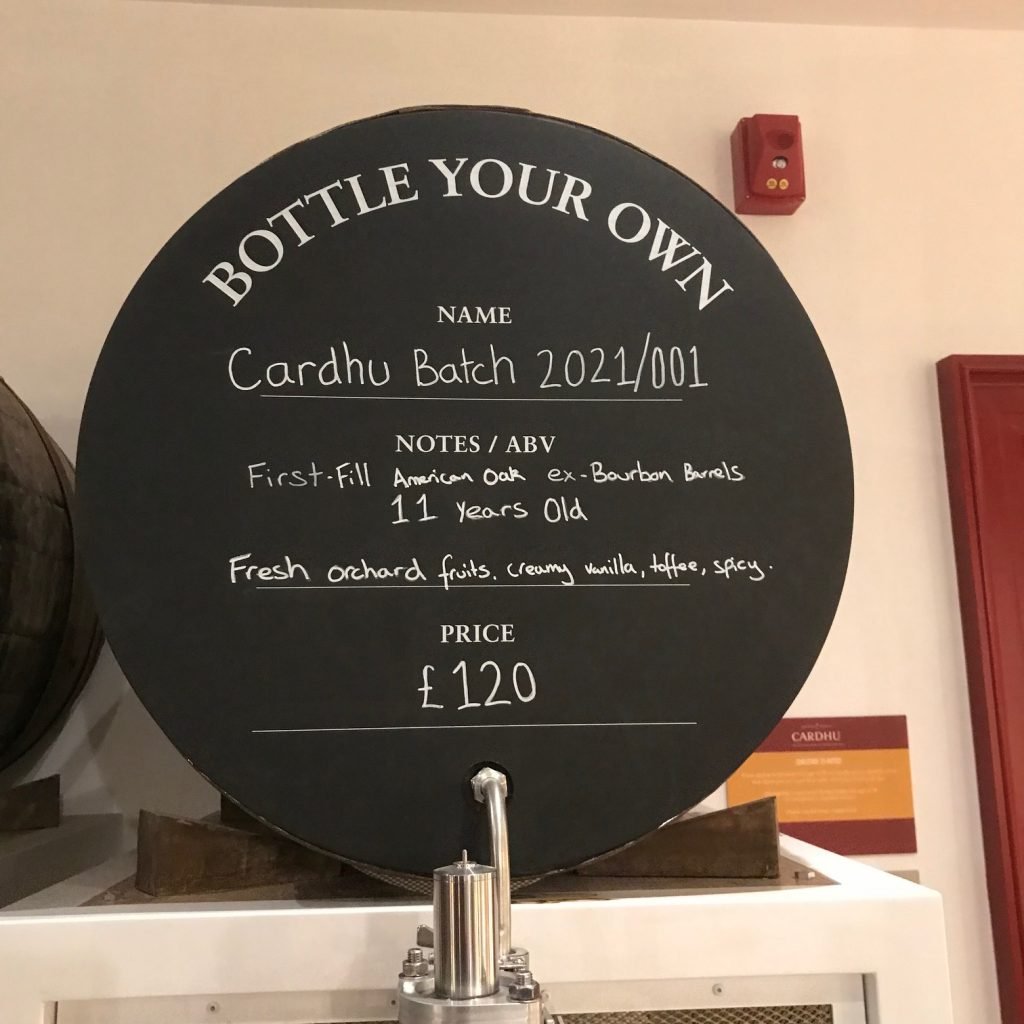 BOTTLE YOUR OWN
NAME
Cardhu Batch 2021/001
NOTES / ABV
First-Fill American Oak ex-Bourbon Barrels
11 Years Old
Fresh orchard fruits. creamy vanilla, toffee, spicy.
PRICE
£120
CARDHU